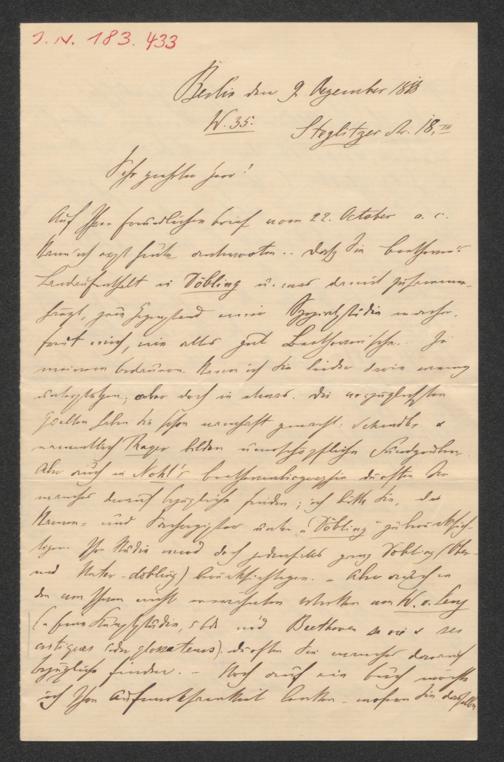 I. N. 183.433
Berlin den 9. Dezember 188
W. 35. Steglitzer Str. 18. III
Sehr geehrter Herr!
Auf Ihren freundlichen Brief vom 22. October a. c.
kann ich erst heute antworten. Daß Sie Beethovens
Landaufenthalt in Döbling u. was damit zusammen-
hängt, zum Gegenstand einer Spezialstudie machen,
freut mich, wie alles gut Beethovensche. Zu
meinem Bedauern kann ich Sie leider darin wenig
unterstützen, aber doch in etwas. Die vorzüglichsten
Quellen haben Sie schon namhaft gemacht. Schindler &
namentlich Thayer bilden unerschöpfliche Fundgruben.
Aber auch in Nohl's Beethovenbiographie dürften Sie
manches darauf bezügliche finden; ich bitte Sie, das
Namen- und Sachregister unter "Döbling" zu berücksich-
tigen. Ihre Studie wird doch jedenfalls ganz Döbling (Ober-
und Unter-döbling) berücksichtigen. - Aber auch in
den von Ihnen nicht erwähnten Werken von W. v. Lenz
(eine Kunststudie, 5 Bde und Beethoven et ses
critiques glossateurs) dürften Sie manches darauf
bezügliche finden. - Noch auf ein Buch möchte
ich Ihre Aufmerksamkeit lenken - wofern Sie dasselbe